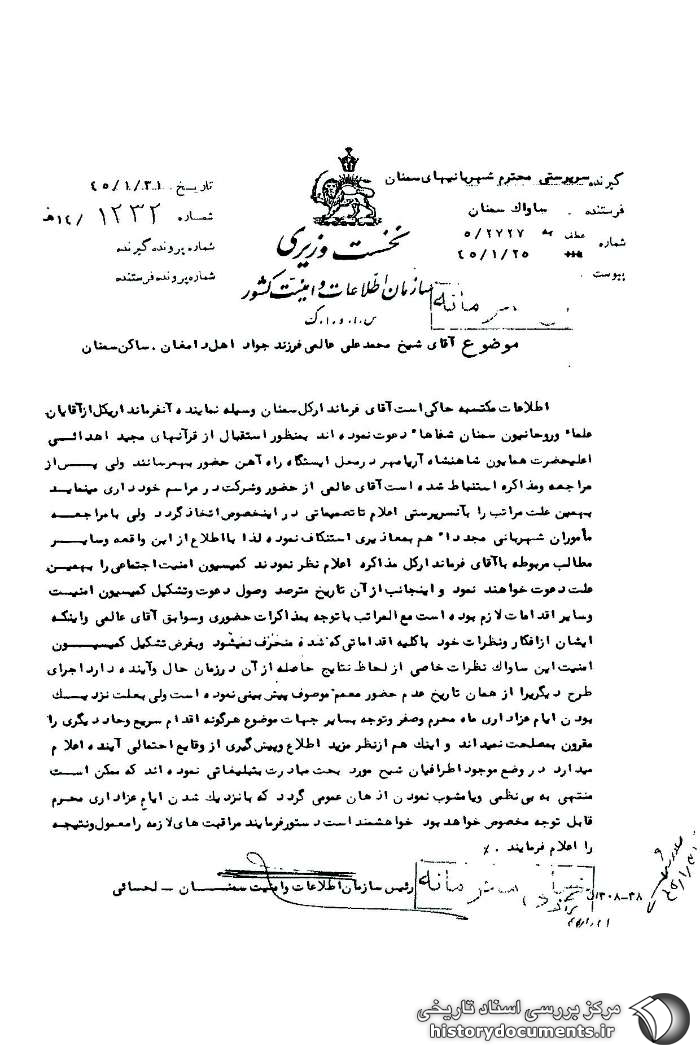 گیرنده سرپرستی محترم شهربانیهای سمنان
فرستنده . ساواک سمنان
شماره عطف به ۵/۲۷۲۷
۴۵/۱/۲۵
پیوست .
نخست وزیری
سازمان اطلاعات و امنیت کشور
س.ا.و.ا.ک
تاریخ ۴۵/۱/۳۱
شماره ۱۲۳۲ /۱۴ هـ
شماره پرونده گیرنده
شماره پرونده فرستنده
موضوع آقای شیخ محمد علی عالمی فرزند جواد اهل دامغان . ساکن سمنان
اطلاعات مکتسبه حاکی است آقای فرماندار کل سمنان وسیله نماینده آنفرمانداریکل از آقایان
علماء و روحانیون سمنان شفاهاً دعوت نموده اند بمنظور استقبال از قرآنهای مجید اهدائی
اعلیحضرت همایون شاهنشاه آریامهر در محل ایستگاه راه آهن حضور بهمرسانند ولی پس از
مراجعه و مذاکره استنباط شده است آقای عالمی از حضور و شرکت در مراسم خودداری مینماید
بهمین علت مراتب را بآنسرپرستی اعلام تا تصمیماتی در اینخصوص اتخاذ گردد ولی با مراجعه
مأموران شهربانی مجدداً هم بمعاذیری استنکاف نموده لذا با اطلاع از این واقعه و سایر
مطالب مربوطه با آقای فرماندار کل مذاکره اعلام نظر نمودند کمیسیون امنیت اجتماعی را بهمین
علت دعوت خواهند نمود و اینجانب از آن تاریخ مترصد وصول دعوت و تشکیل کمیسیون امنیت
و سایر اقدامات لازم بوده است مع المراتب با توجه بمذاکرات حضوری و سوابق آقای عالمی و اینکه
ایشان از افکار و نظرات خود با کلیه اقداماتی که شده منحرف نمیشود و بفرض تشکیل کمیسیون
امنیت این ساواک نظرات خاصی از لحاظ نتایج حاصله از آن در زمان حال و آینده دارد اجرای
طرح دیگریرا از همان تاریخ عدم حضور معمم موصوف پیش بینی نموده است ولی بعلت نزدیک
بودن ایام عزاداری ماه محرم و صفر و توجه بسایر جهات موضوع هرگونه اقدام سریع و حاد دیگری را
مقرون بمصلحت نمیداند و اینک هم از نظر مزید اطلاع و پیش گیری از وقایع احتمالی آینده اعلام
میدارد در وضع موجود اطرافیان شیخ مورد بحث مبادرت بتبلیغاتی نموده اند که ممکن است
منتهی به بی نظمی و یا مشوب نمودن اذهان عمومی گردد که با نزدیک شدن ایام عزاداری محرم
قابل توجه مخصوص خواهد بود خواهشمند است دستور فرمایند مراقبت های لازمه را معمول و نتیجه
را اعلام فرمایند . ٪
رئیس سازمان اطلاعات و امنیت سمنان – لحسائی
مرکز بررسی اسناد تاریخی
historydocuments.ir